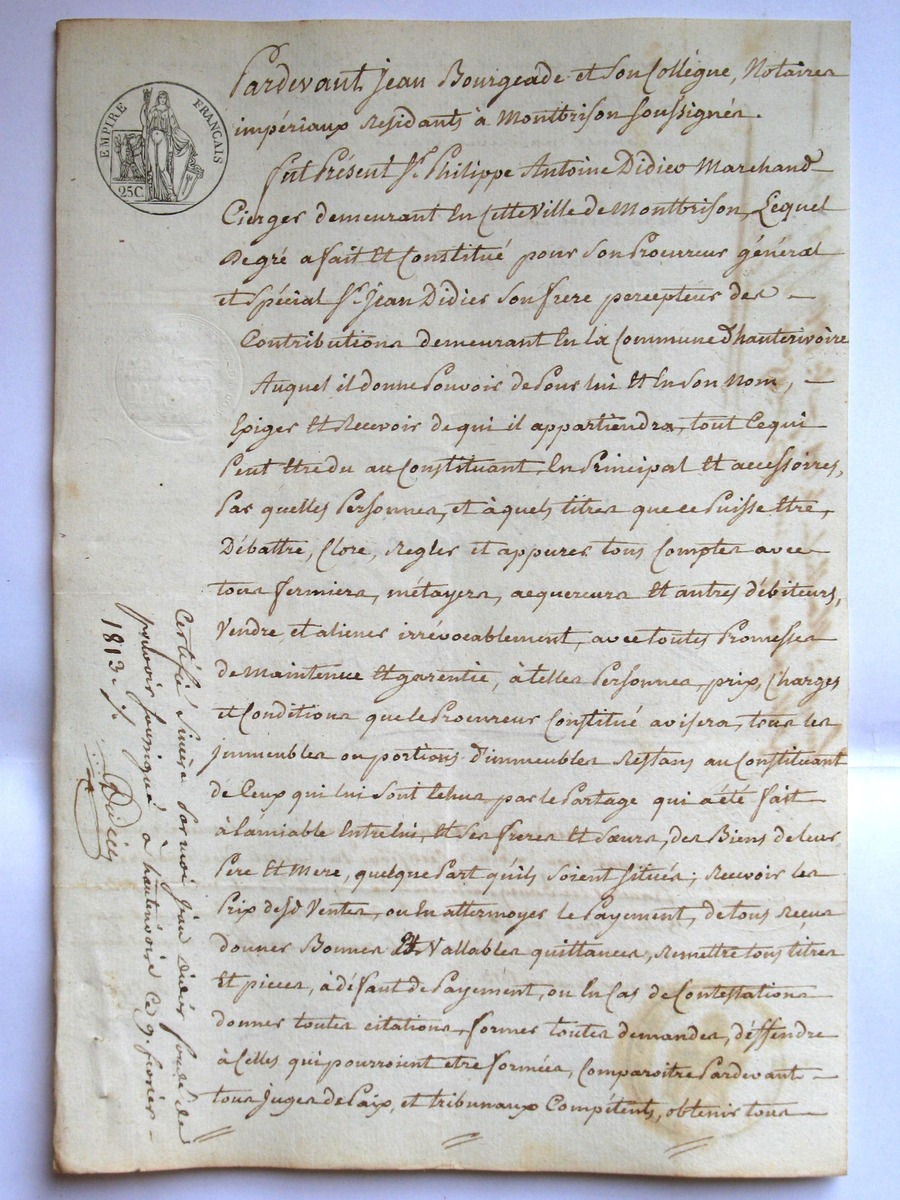 EMPIRE FRANÇAIS
25C.
Pardevant Jean Bourgeade et Son Collègue, Notaires
impériaux residants à Montbrison Soussignés.
fut Présent Sr. Philippe Antoine Didier Marchand
Cierger demeurant En Cette Ville de Montbrison, Lequel
de gré a fait Et Constitué pour Son Procureur général
et Spécial Sr. Jean Didier Son frere percepteur des
Contributions demeurant En la Commune D'hauterivoire
Auquel il donne Pouvoir de Pour lui Et En Son Nom,
Exiger Et Recevoir de qui il appartiendra, tout Ce qui
Peut Etre du au Constituant En Principal Et accessoires,
Par quelles Personnes, et à quels titres que ce Puisse Etre,
Débattre, Clore, Regler et appurer tous Comptes avec
tous fermiers, métayers, acquereurs Et autres débiteurs,
Vendre, et aliener irrévocablement, avec toutes Promesses
de Maintenue Et garentie, à telles Personnes, prix, Charges
et Conditions que le Procureur Constitué avisera, tous les
immeubles ou portions d'immeubles Restans au Constituant
de Ceux qui lui Sont Echus, par le Partage qui a été fait
à l'amiable Entre lui, Et Ses freres Et Sœurs, des Biens de leur
Pere Et Mere, quelque Part qu'ils Soient Situés; Recevoir les
Prix desd Ventes, ou En attermoyer le Payement, de tous Reçus
donner Bonnes Et Vallables quittances, Remettre tous titres
Et pieces, à défaut de Payement, ou En Cas de Contestations
donner toutes citations, former toutes demandes, déffendre
à Celles qui pourroient etre formées, Comparoitre Pardevant
tous Juges de Paix, et tribunaux Compétents, obtenir tous
Certifié Sincère Par moi Jean Didier fondé de
pouvoir Soussigné à hauterivoire Ce 9. fevrier
1813. /.
Didier